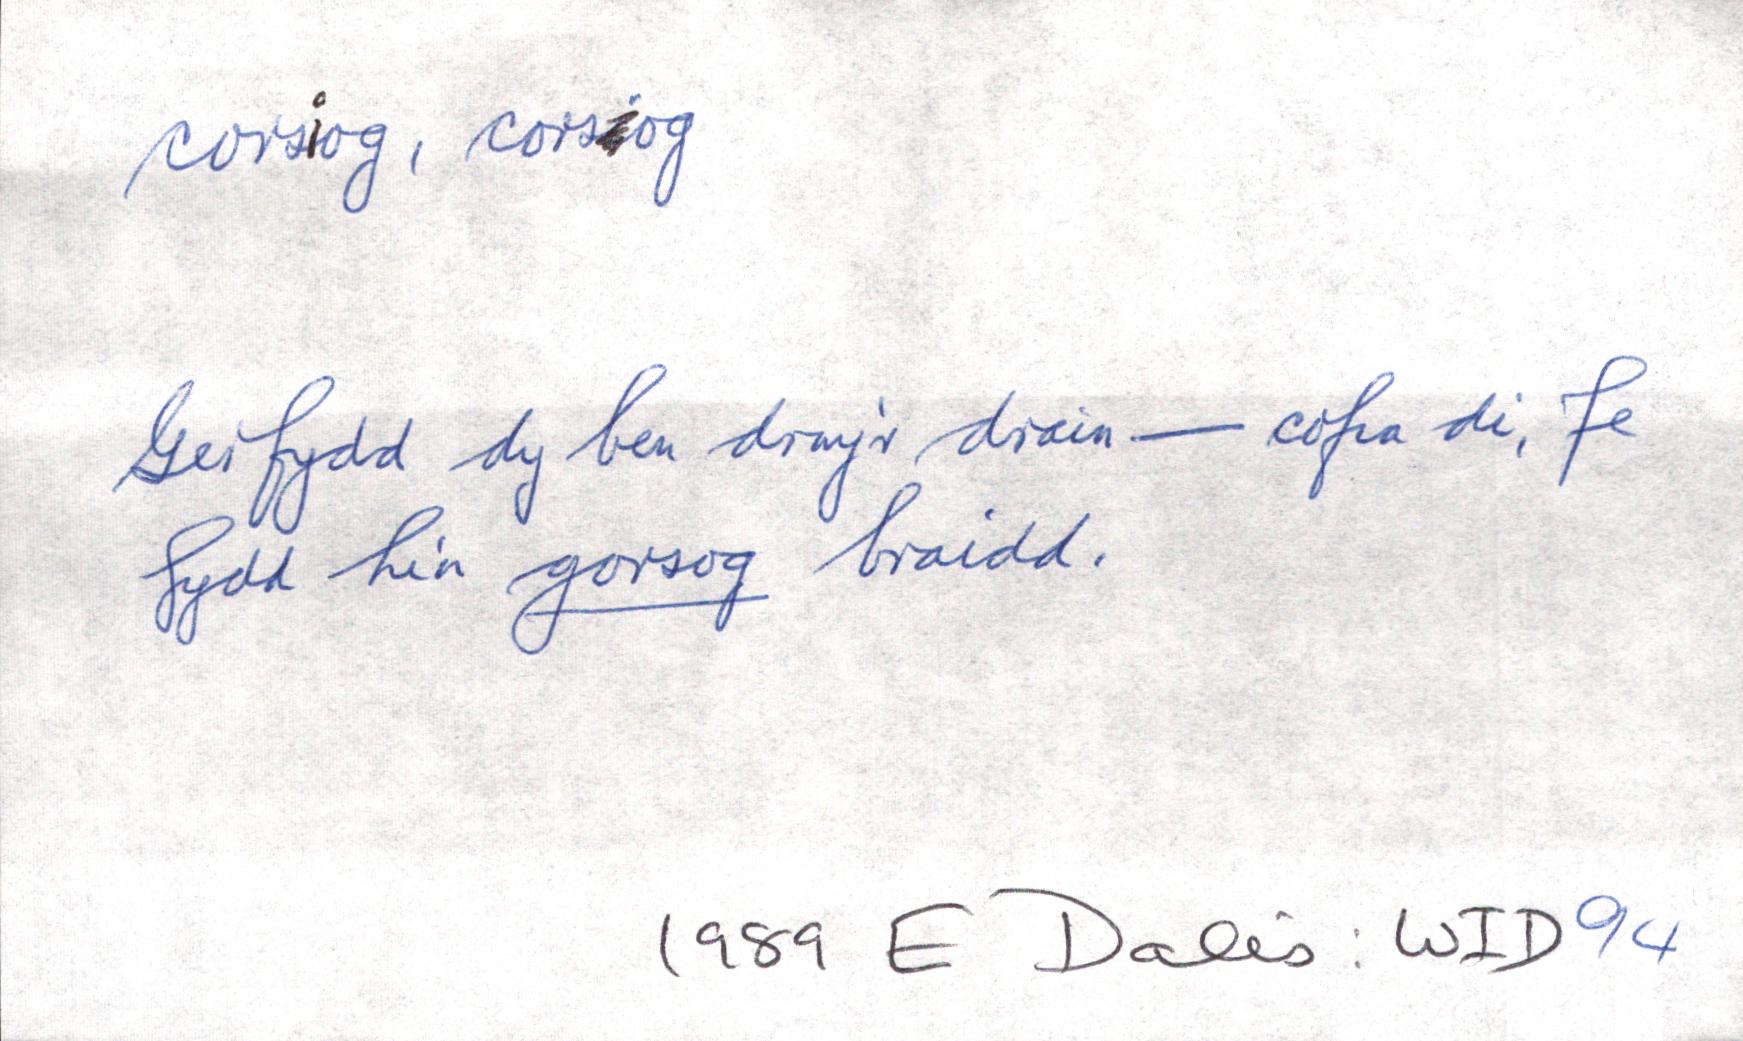 corsiog, corsiog
Gerfydd dy ben drwy'r drain — cofia di, Fe
fydd hin gorsog braidd.
1989 E Dalis: WID 94